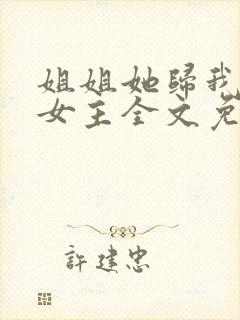 姐姐她歸我
女主全文免
許建忠